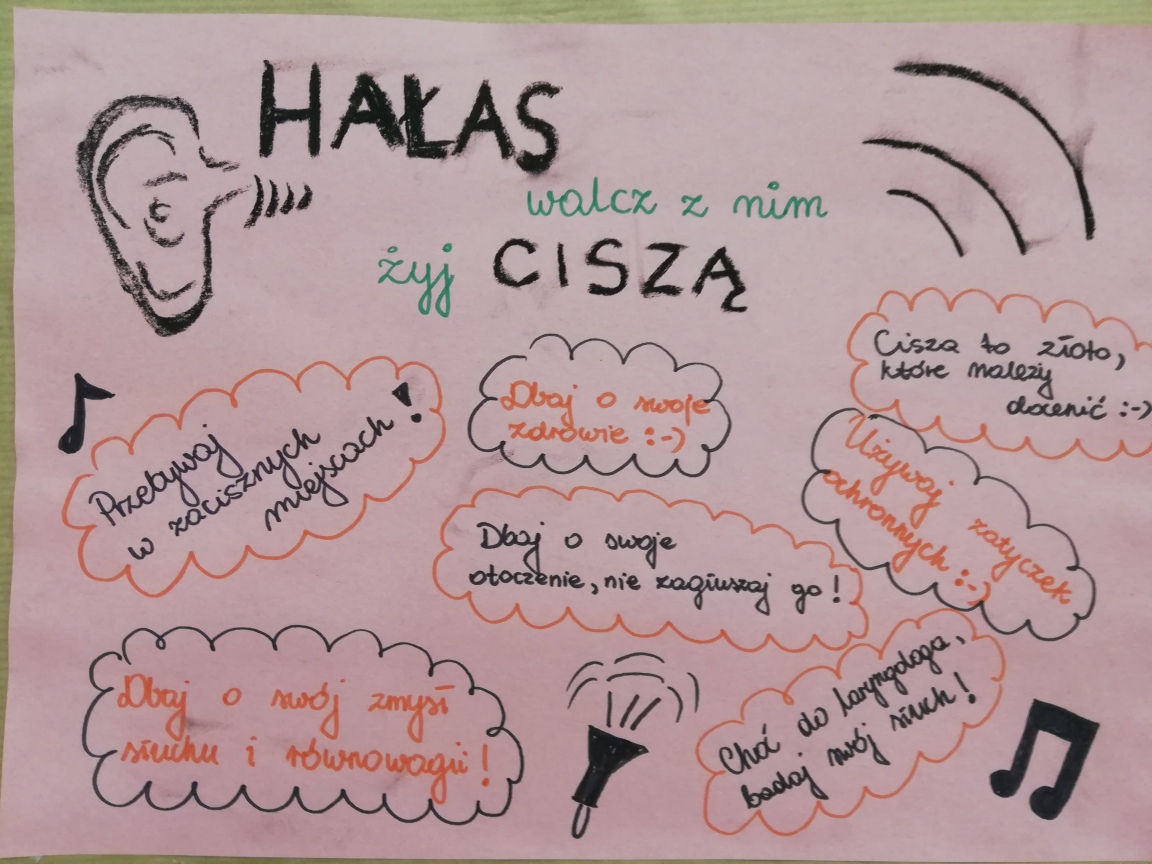 HAŁAS
walcz z nim
żyj CISZĄ
Cisza to złoto,
które należy
docenić :-)
Dbaj o swoje
zdrowie :-)
Przebywaj
w zacisznych
miejscach !
Używaj zatyczek
ochronnych :-)
Dbaj o swoje
otoczenie, nie zagłuszaj go !
Dbaj o swój zmysł
słuchu i równowagii !
Chodź do laryngologa,
badaj swój słuch !